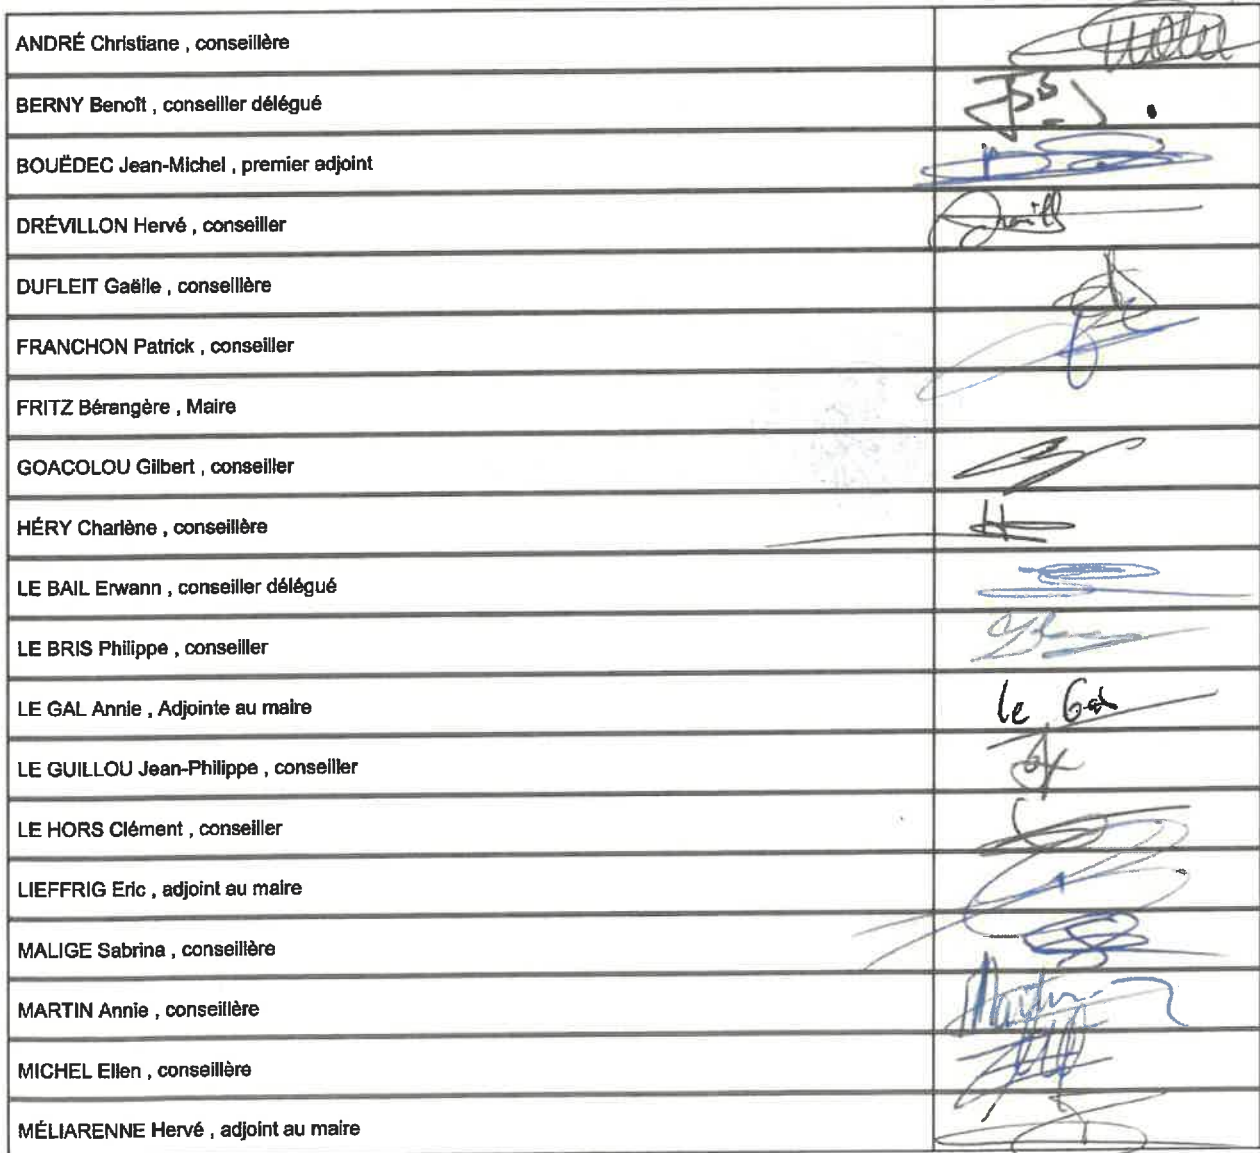 ANDRÉ Christiane , conseillère
BERNY Benoît , conseiller délégué
BOUËDEC Jean-Michel , premier adjoint
DRÉVILLON Hervé , conseiller
DUFLEIT Gaëlle , conseillère
FRANCHON Patrick , conseiller
FRITZ Bérangère , Maire
GOACOLOU Gilbert , conseiller
HÉRY Charlène , conseillère
LE BAIL Erwann , conseiller délégué
LE BRIS Philippe , conseiller
LE GAL Annie , Adjointe au maire
le Gal
LE GUILLOU Jean-Philippe , conseiller
LE HORS Clément , conseiller
LIEFFRIG Eric , adjoint au maire
MALIGE Sabrina , conseillère
MARTIN Annie , conseillère
Martin
MICHEL Ellen , conseillère
MÉLIARENNE Hervé , adjoint au maire